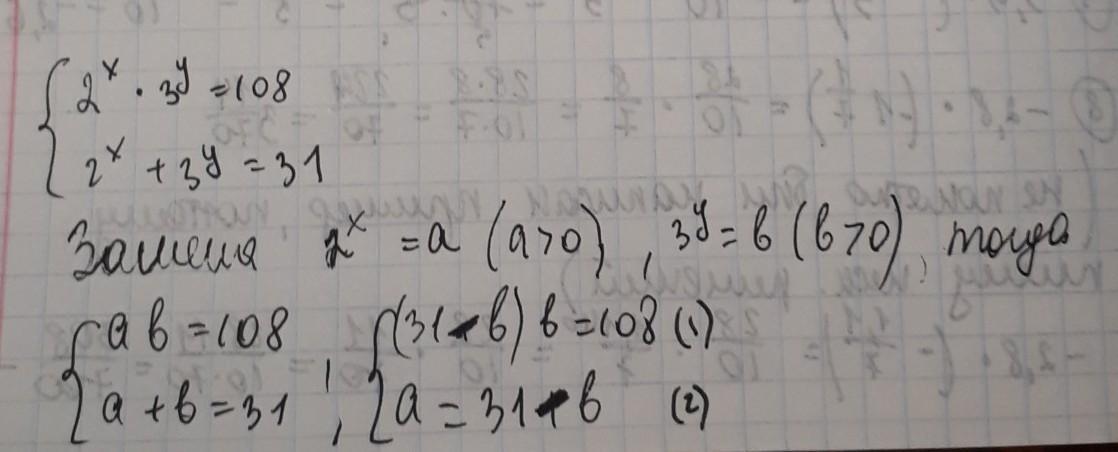 2^x · 3^y = 108
2^x + 3^y = 31
Замена 2^x = a (a>0), 3^y = в (в>0), тогда
aв = 108
a + в = 31 ;
(31 - в) в = 108 (1)
a = 31 - в (2)